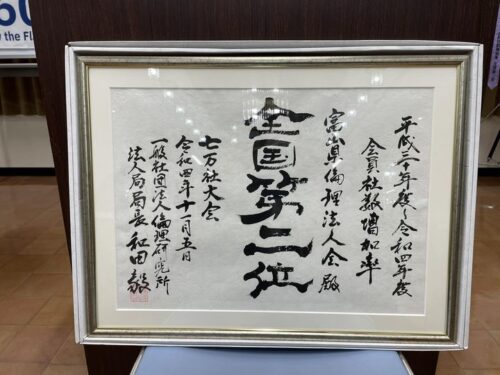 平成三十年度~令和四年度
会員社数増加率
富山県倫理法人会殿
全国第二位
七万社大会
令和四年十一月五日
一般社団法人倫理研究所
法人局局長 和田毅
w the Fl